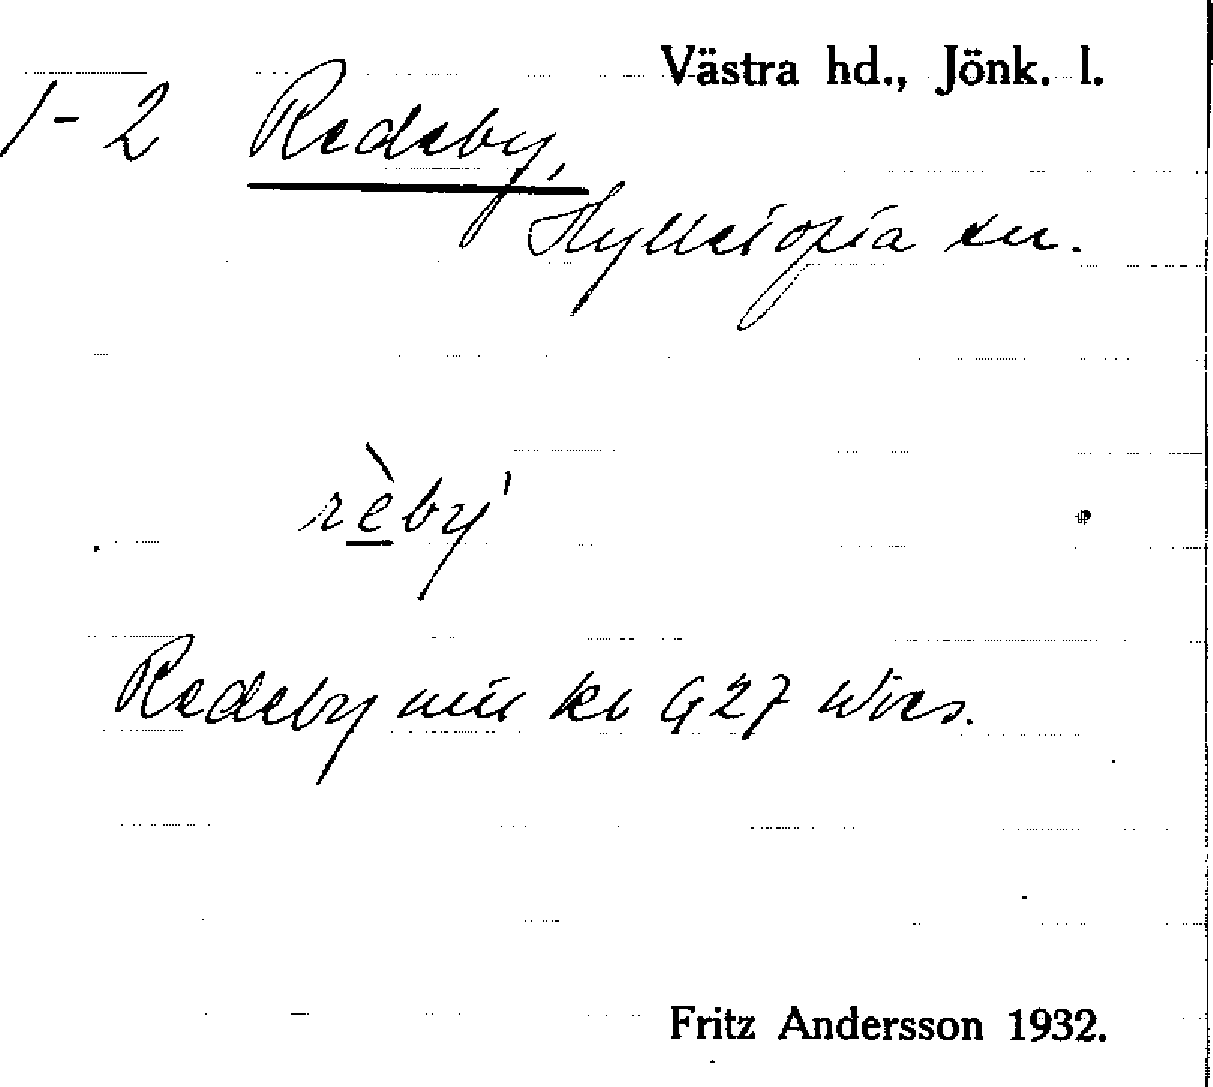 Västra hd., Jönk. l.
1-2 Redeby,
Hylletofta sn.
rèby'
Redeby
Fritz Andersson 1932.